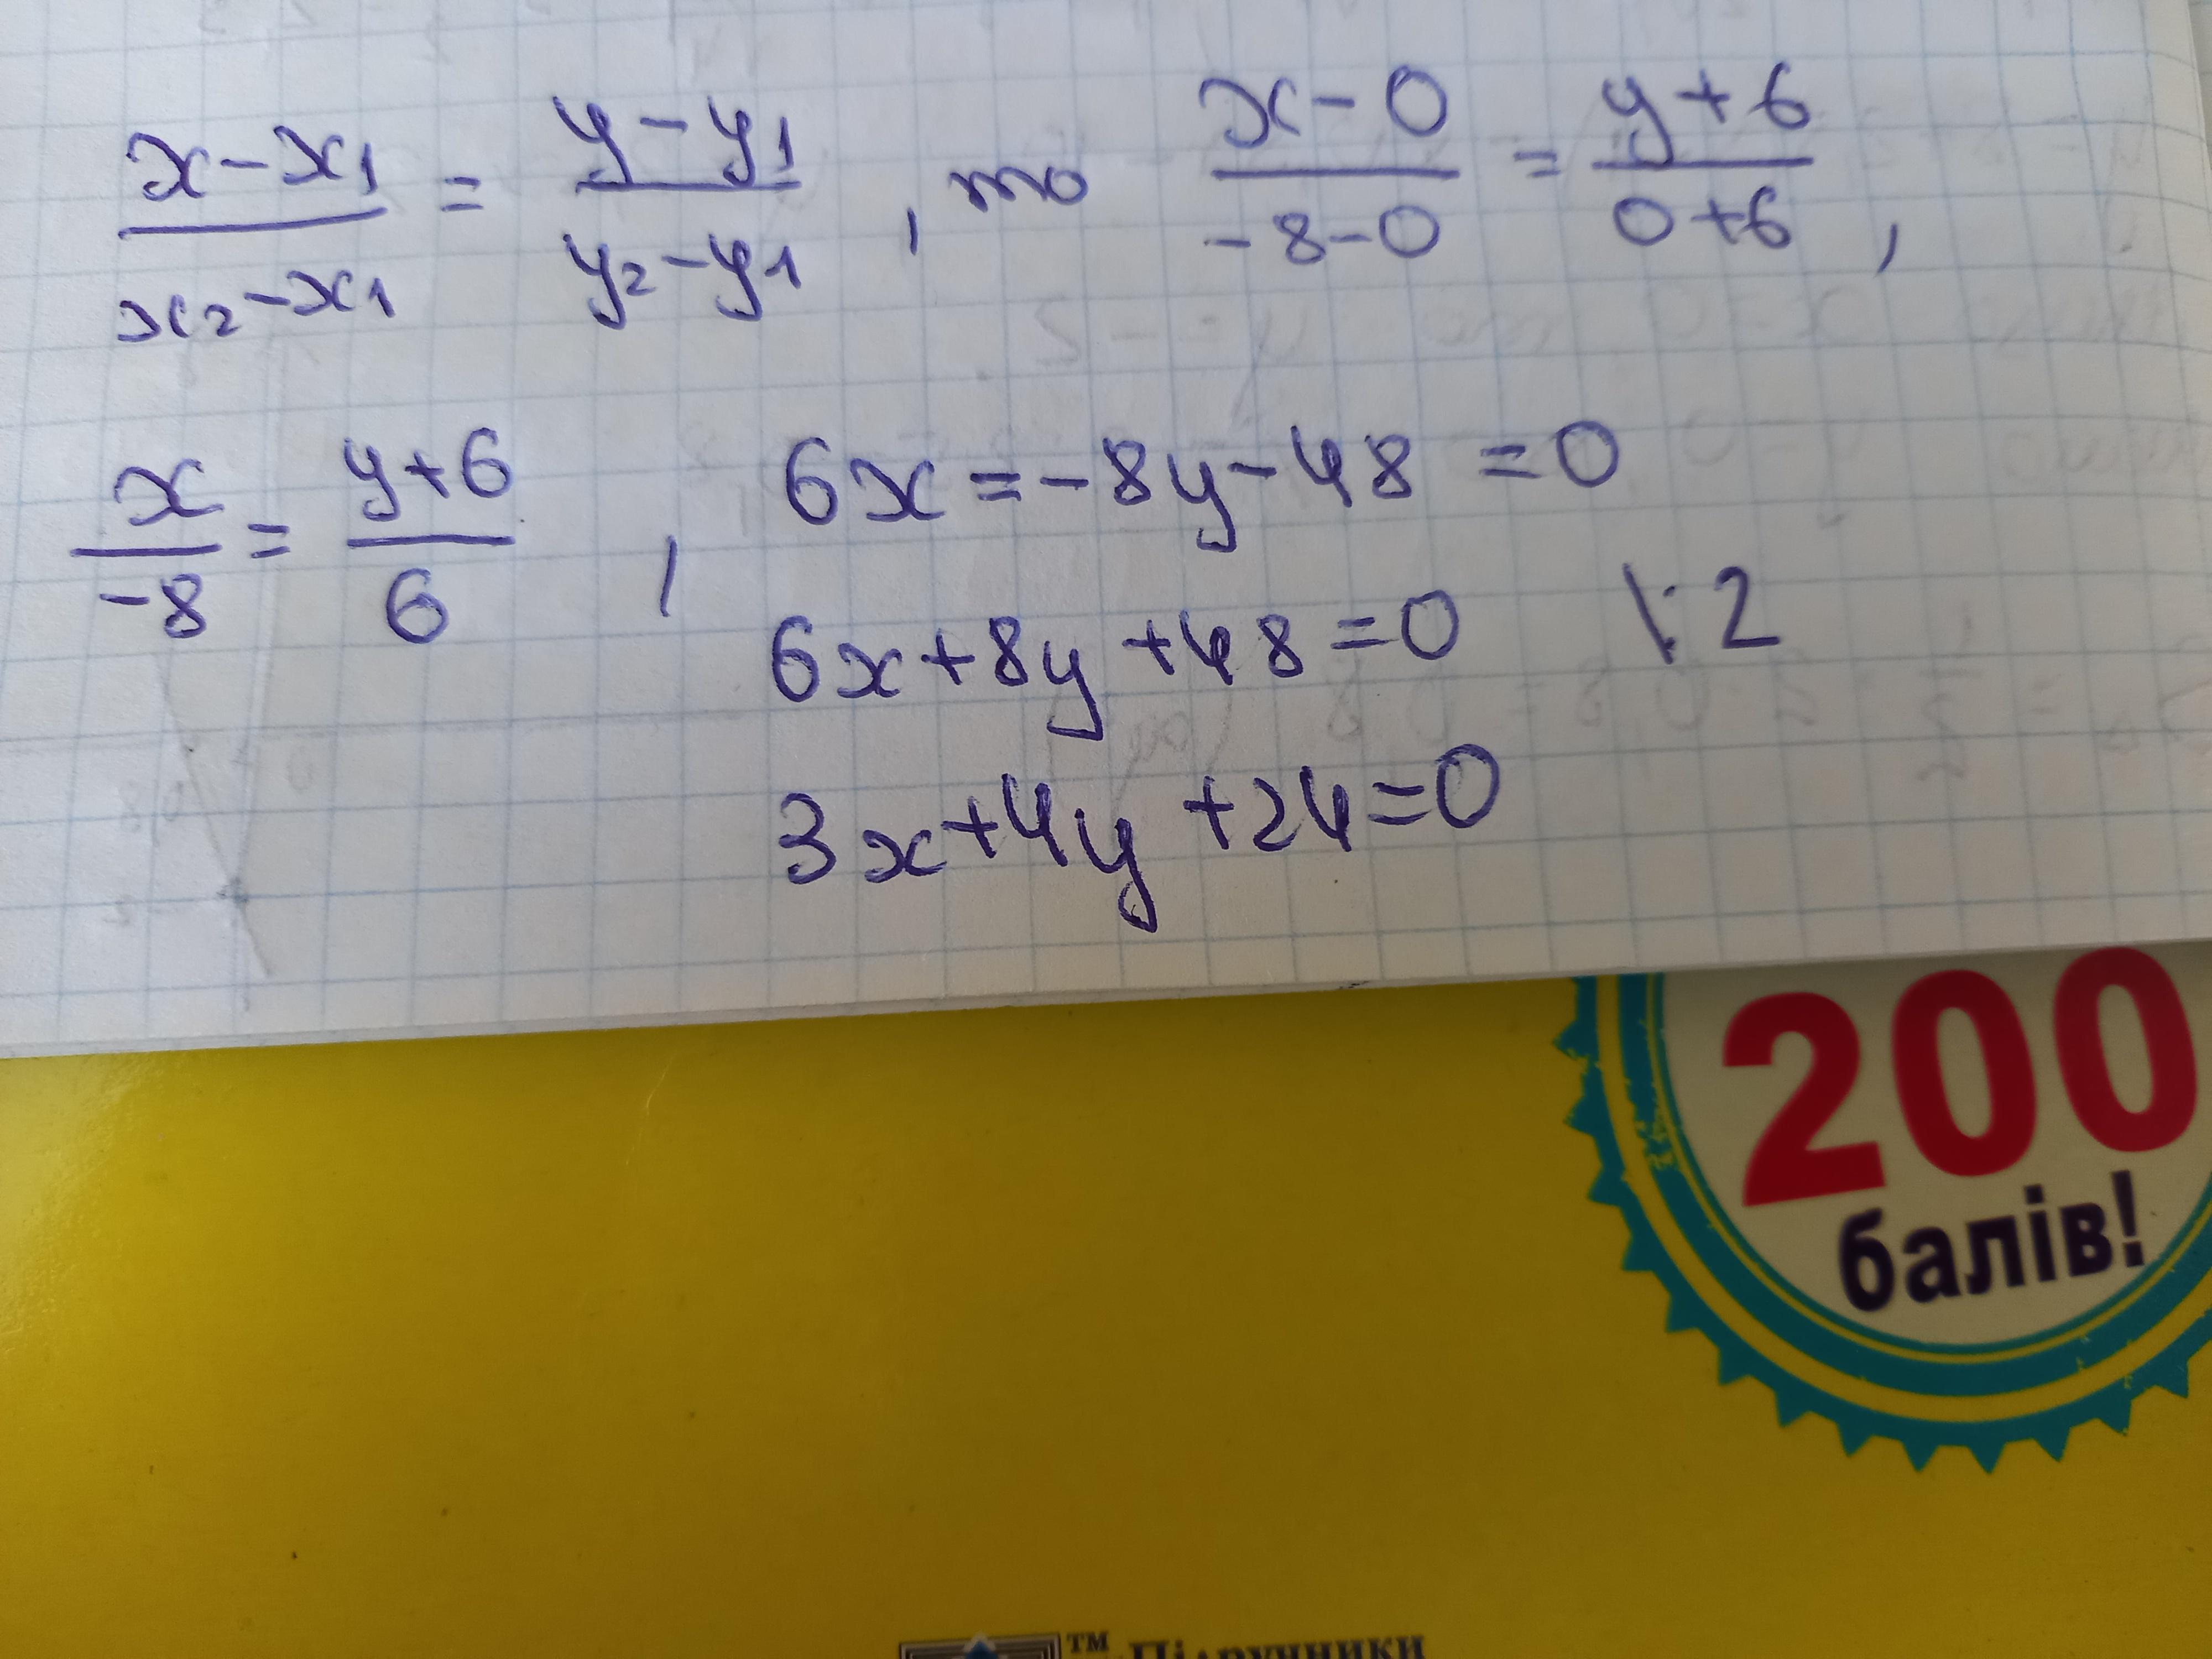 x-x₁/x₂-x₁ = y-y₁/y₂-y₁, то x-0/-8-0 = y+6/0+6,
x/-8 = y+6/6, 6x=-8y-48 =0
6x+8y+48=0 \:2
3x+4y+24=0
200
балів!
™ Підручники